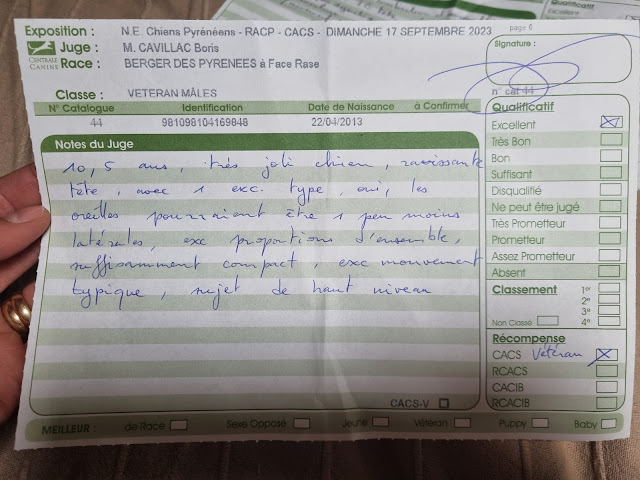 Excellent
page 6
Exposition : N.E. Chiens Pyrénéens - RACP - CACS - DIMANCHE 17 SEPTEMBRE 2023
Signature :
CENTRALE CANINE
Juge : M. CAVILLAC Boris
Race : BERGER DES PYRENEES à Face Rase
Classe : VETERAN MÂLES
n° cat 44
N° Catalogue Identification Date de Naissance à Confirmer
44 981098104169848 22/04/2013
Notes du Juge
10,5 ans, très joli chien, ravissante
tête, avec 1 exc. type, oui, les
oreilles pourraient être 1 peu moins
latérales, exc proportions d'ensemble,
suffisamment compact, exc mouvement
typique, sujet de haut niveau
CACS-V
Qualificatif
Excellent
Très Bon
Bon
Suffisant
Disqualifié
Ne peut être jugé
Très Prometteur
Prometteur
Assez Prometteur
Absent
Classement 1er
2e
3e
Non Classé 4e
Récompense
CACS Vétéran
RCACS
CACIB
RCACIB
MEILLEUR : de Race Sexe Opposé Jeune Vétéran Puppy Baby